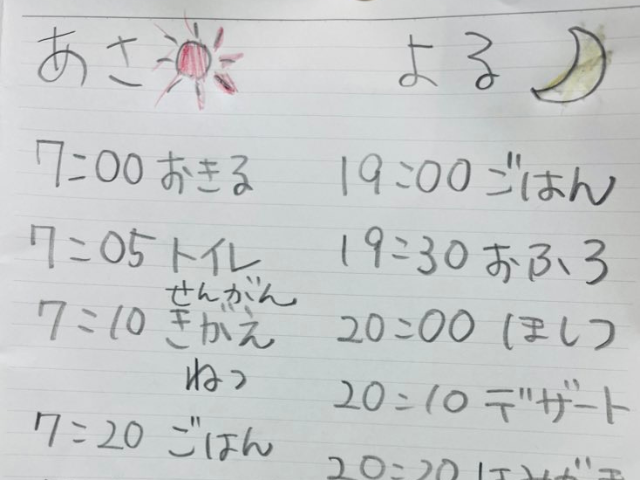 あさ
7:00 おきる
7:05 トイレ
せんがん
7:10 きがえ
ねつ
7:20 ごはん
よる
19:00 ごはん
19:30 おふろ
20:00 ほしつ
20:10 デザート
20:20 はみがき